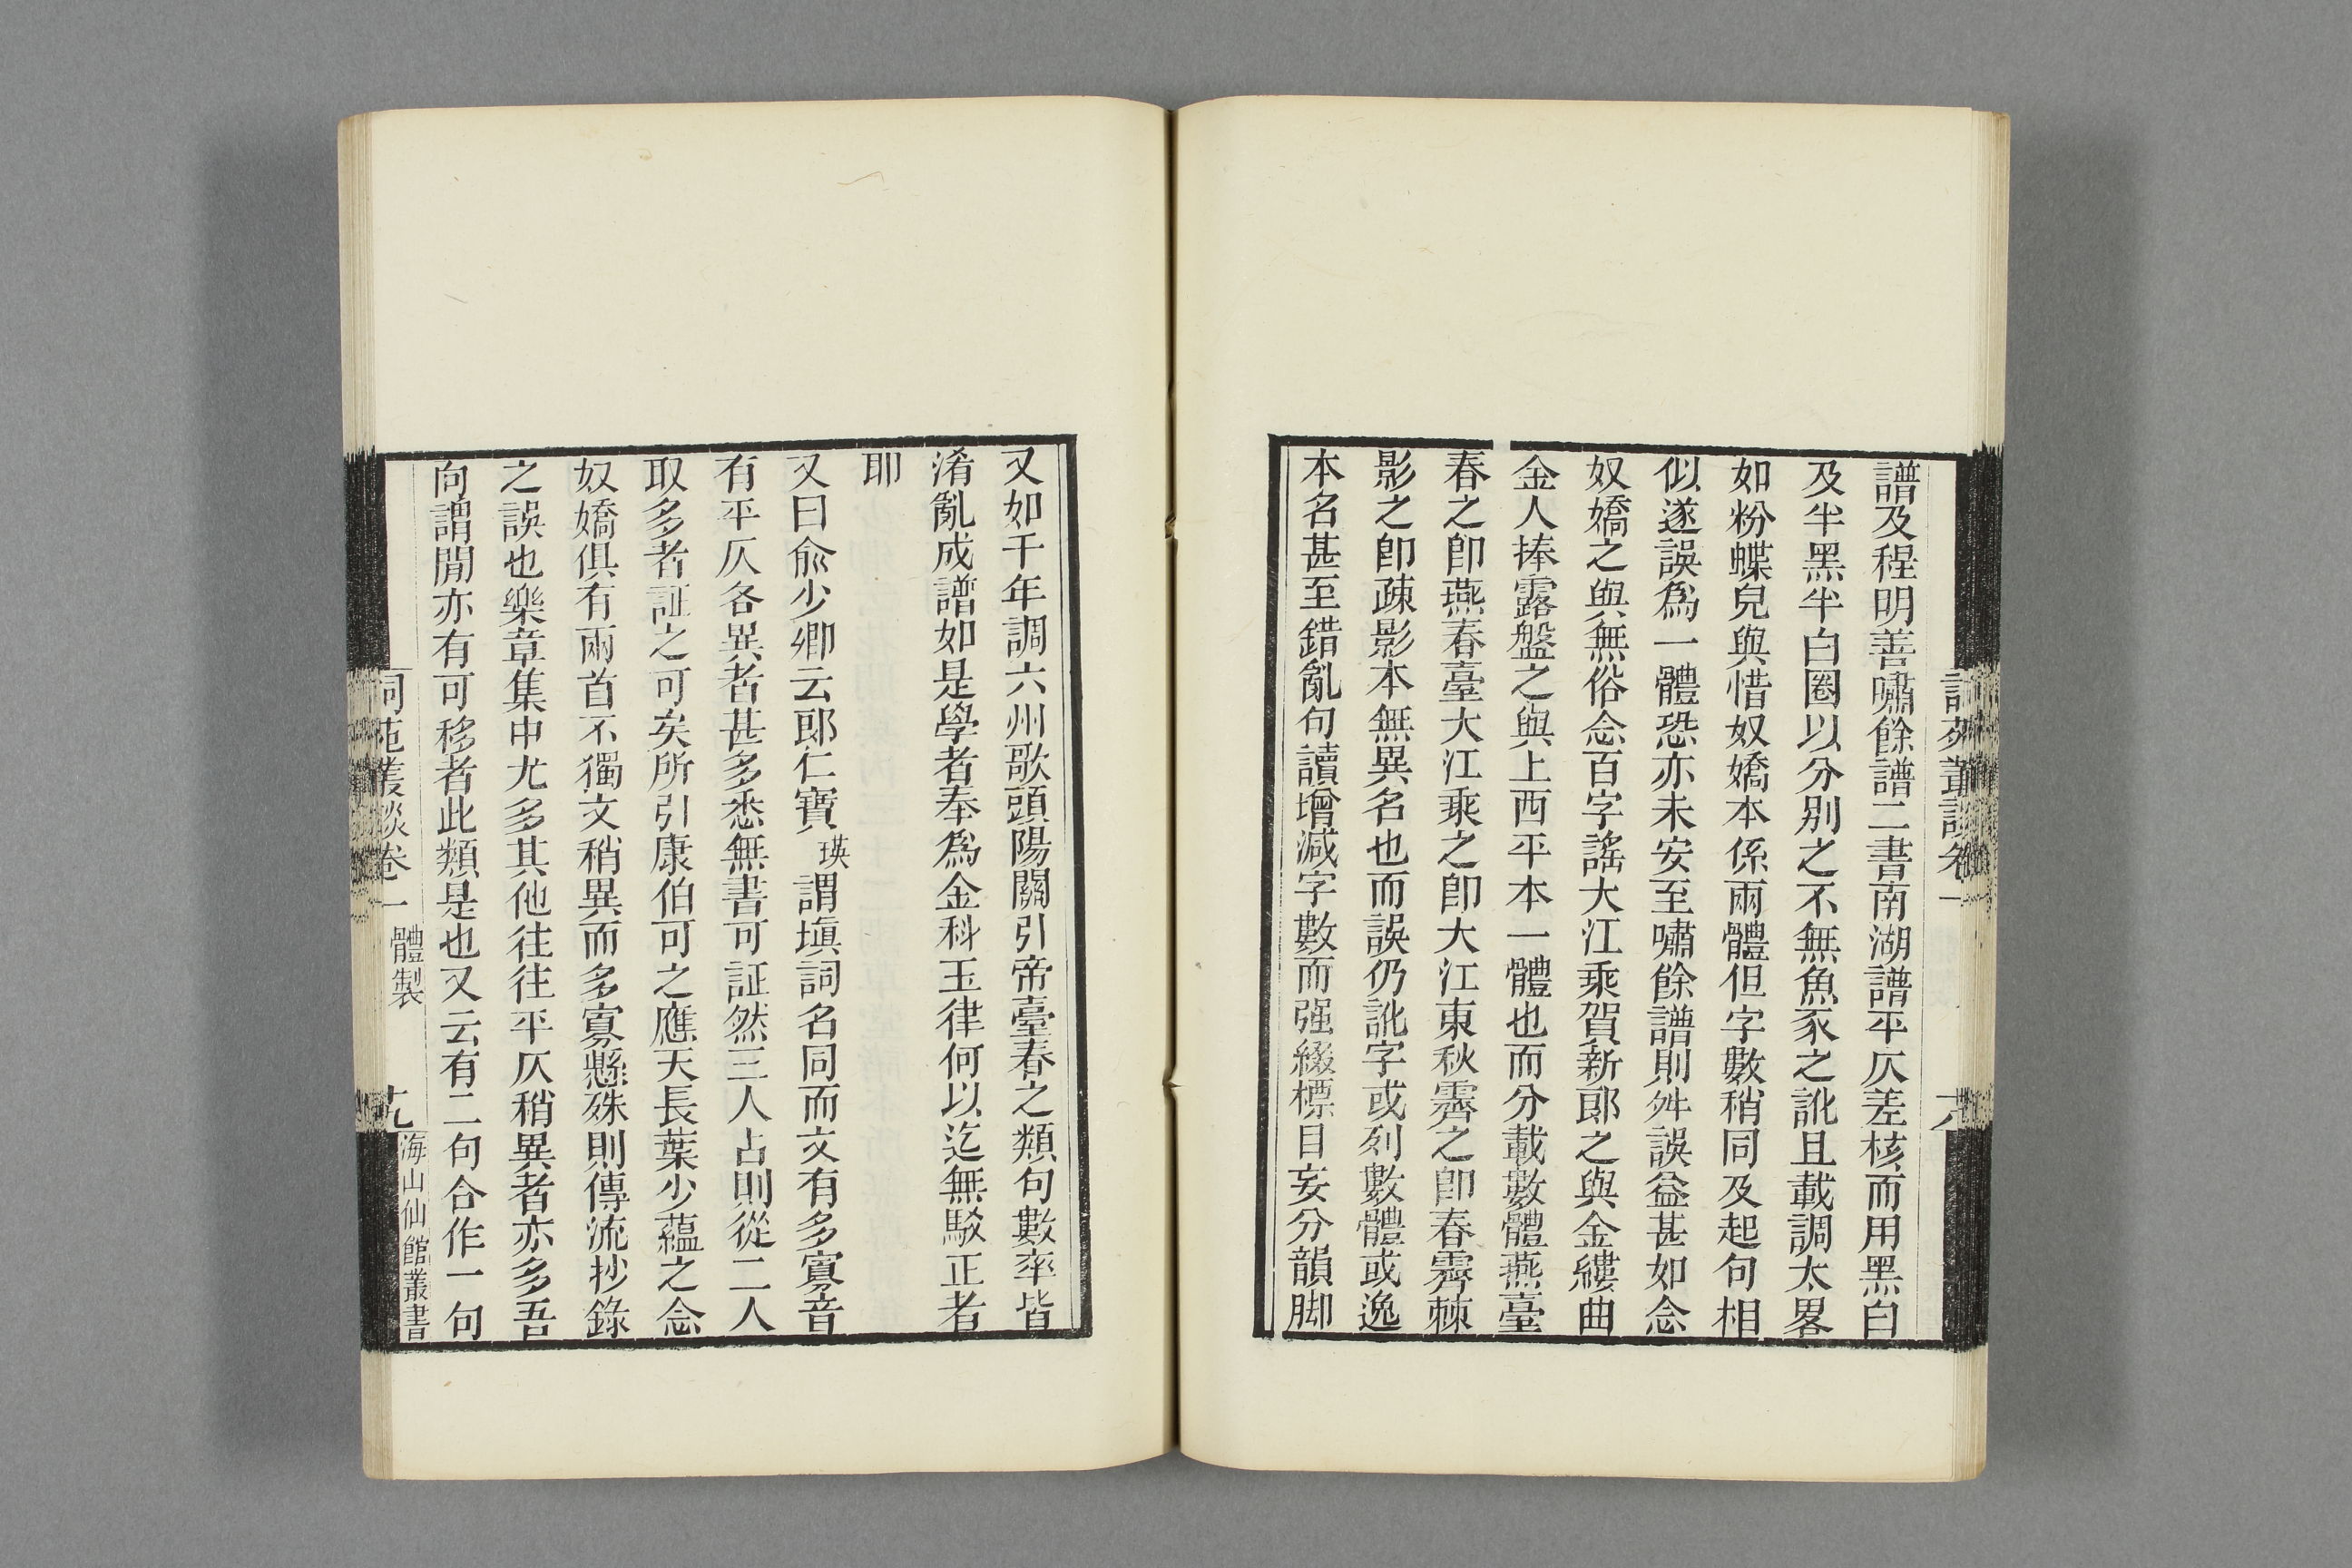 譜及程明善嘯餘譜二書南湖譜平仄差核而用黑白
及半黑半白圈以分別之不無魚豕之訛且載調太畧
如粉蝶兒與惜奴嬌本係兩體但字數稍同及起句相
似遂誤爲一體恐亦未安至嘯餘譜則舛誤益甚如念
奴嬌之與無俗念百字謠大江乘賀新郎之與金縷曲
金人捧露盤之與上西平本一體也而分載數體燕臺
春之卽燕春臺大江乘之卽大江東秋霽之卽春霽棘
影之卽疎影本無異名也而誤仍訛字或列數體或逸
本名甚至錯亂句讀增減字數而强綴標目妄分韻脚
又如千年調六州歌頭陽關引帝臺春之類句數率皆
淆亂成譜如是學者奉爲金科玉律何以迄無駁正者
耶
又曰俞少卿云郎仁寶瑛謂塡詞名同而文有多寡音
有平仄各異者甚多悉無書可証然三人占則從二人
取多者証之可矣所引康伯可之應天長葉少蘊之念
奴嬌俱有兩首不獨文稍異而多寡懸殊則傳流抄錄
之誤也樂章集中尤多其他往往平仄稍異者亦多吾
向謂閒亦有可移者此類是也又云有二句合作一句
詞苑叢談卷一 體製 十九 海山仙館叢書